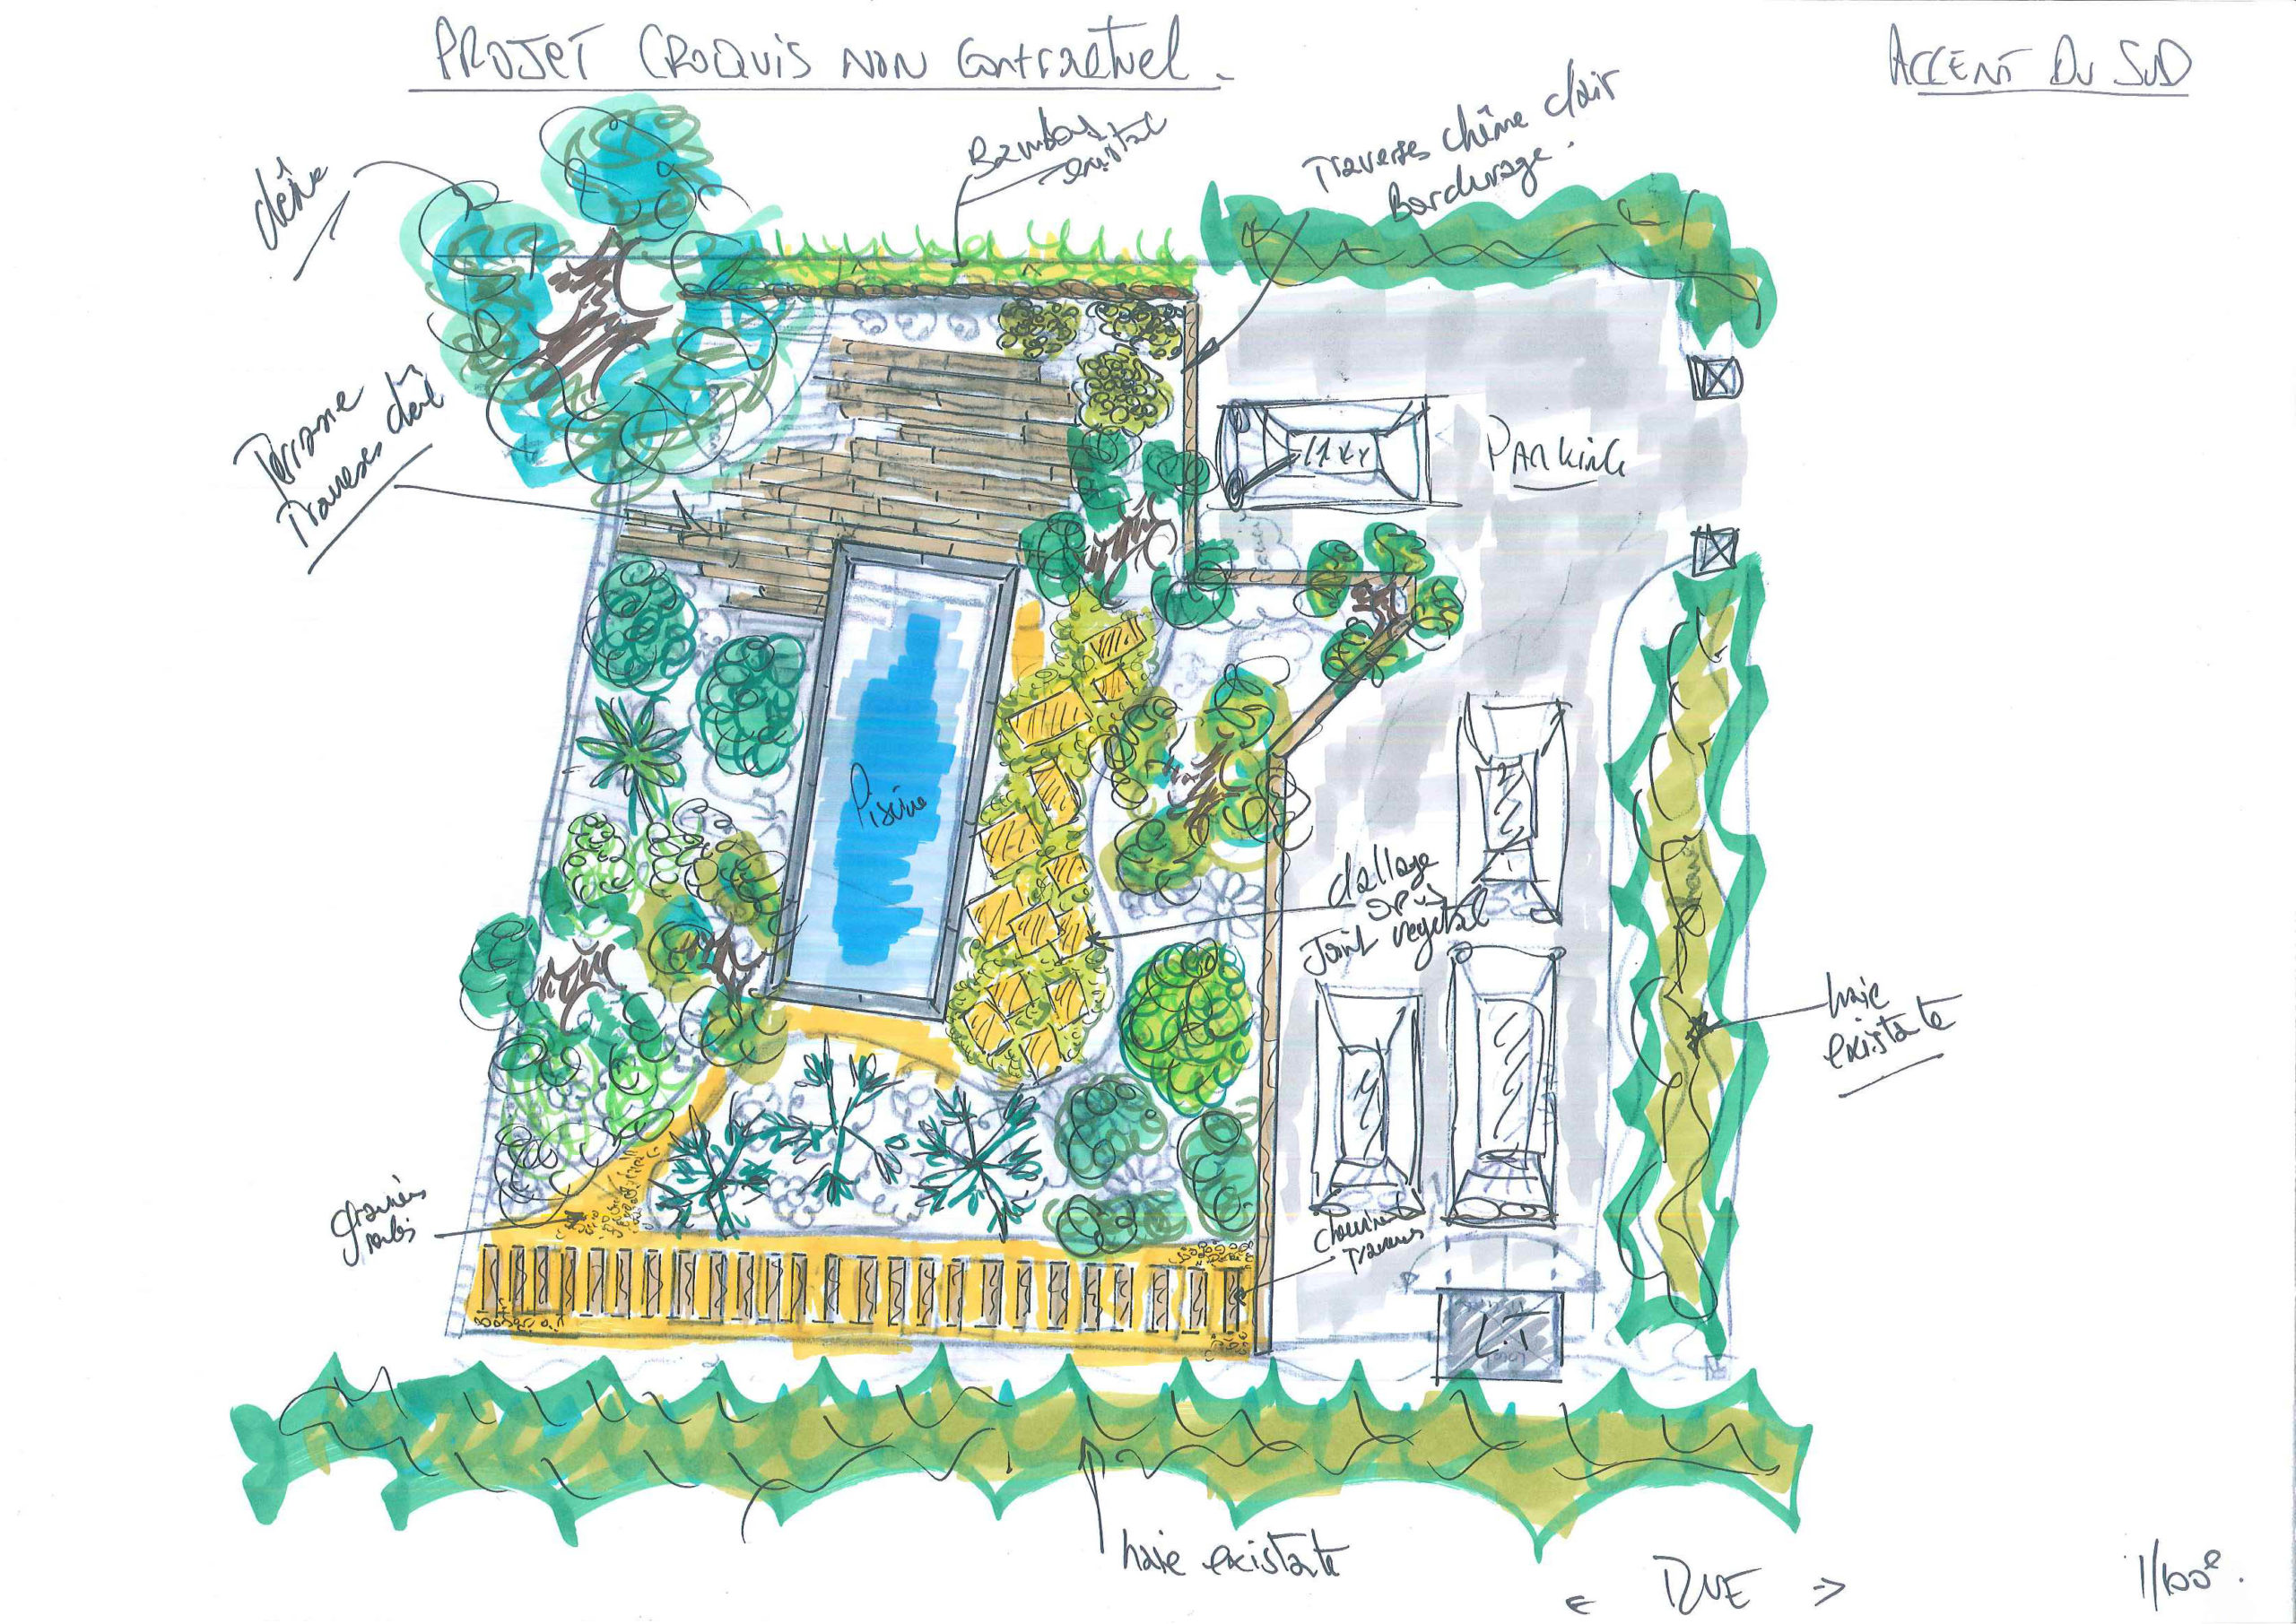 PROJET CROQUIS NON Contractuel.
ACCENT DU SUD
Bambou
existant
Traverses chêne clair
Bordurage.
chêne
Terrasse
Traverses chêne
PARKING
Piscine
dallage
Joint végétal
haie
existante
graviers
Chemin
Traverses
L.T
haie existante
← RUE →
1/100e.